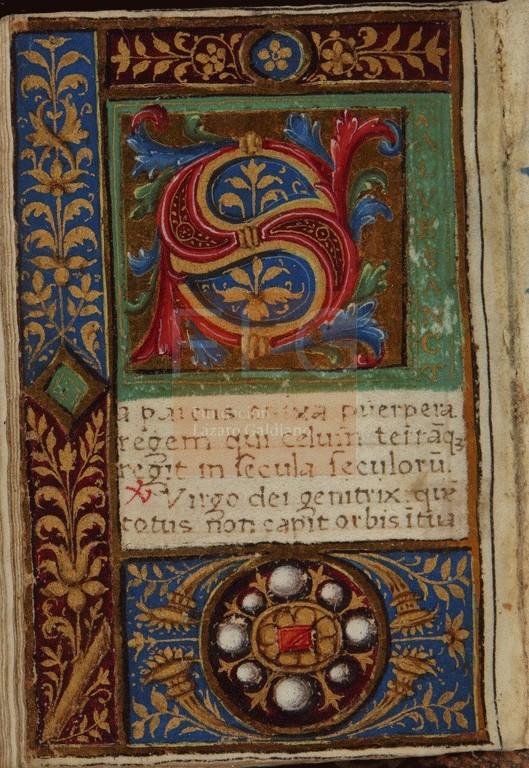 S
ALVE SANCT
a parens enixa puerpera
regem qui celum terrāqꝫ
regit in secula seculorū.
℣ Virgo dei genitrix que
totus non capit orbis ī tua
FLG
Fundación
Lázaro Galdiano